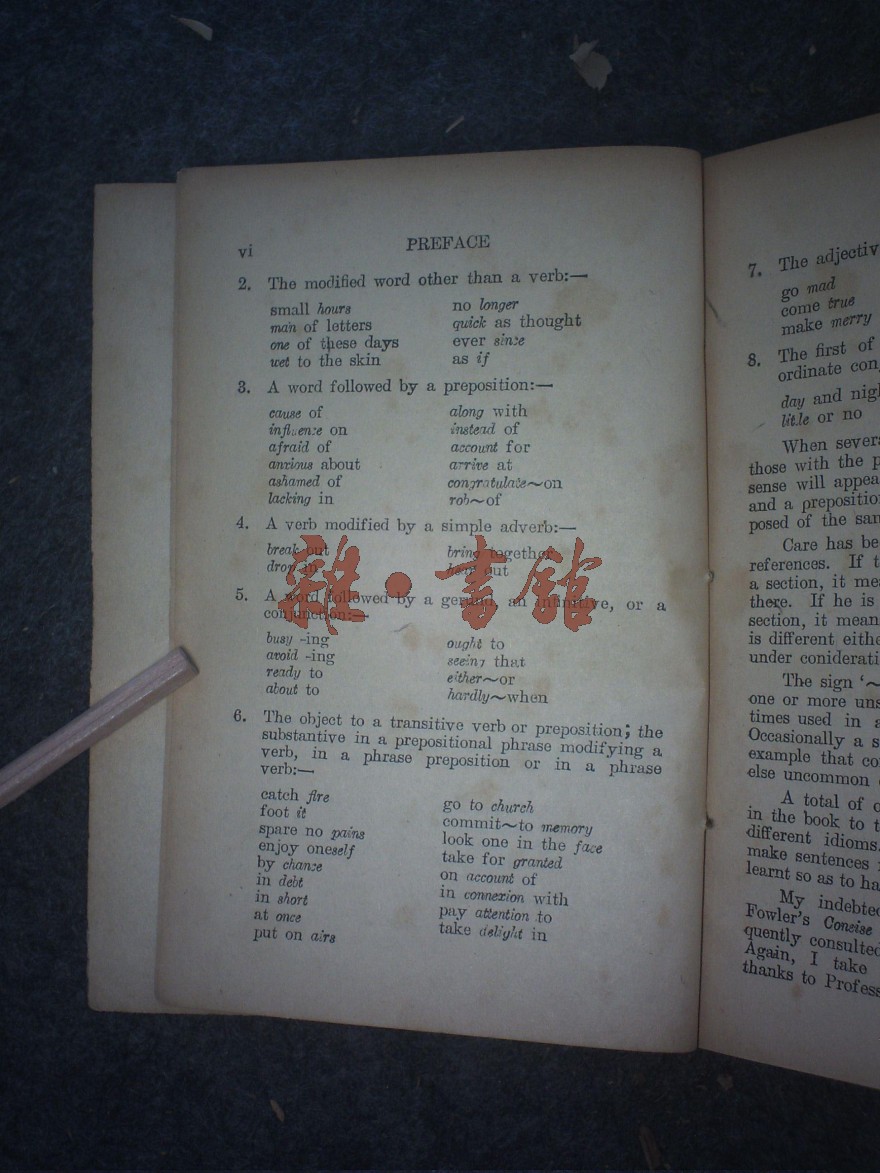 vi PREFACE
2. The modified word other than a verb:—
small hours no longer
man of letters quick as thought
one of these days ever since
wet to the skin as if
3. A word followed by a preposition:—
cause of along with
influence on instead of
afraid of account for
anxious about arrive at
ashamed of congratulate~on
lacking in rob~of
4. A verb modified by a simple adverb:—
break out bring together
drop in out
5. A word followed by a gerund, an infinitive, or a
conjunction:—
busy -ing ought to
avoid -ing seeing that
ready to either~or
about to hardly~when
6. The object to a transitive verb or preposition; the
substantive in a prepositional phrase modifying a
verb, in a phrase preposition or in a phrase
verb:—
catch fire go to church
foot it commit~to memory
spare no pains look one in the face
enjoy oneself take for granted
by chance on account of
in debt in connexion with
in short pay attention to
at once take delight in
put on airs
雜·書館
7. The adjectiv
go mad
come true
make merry
8. The first of
ordinate con
day and nigh
little or no
When severa
those with the p
sense will appea
and a prepositio
posed of the sam
Care has be
references. If t
a section, it mea
there. If he is
section, it mean
is different eithe
under coniderati
The sign ‘~
one or more uns
times used in a
Occasionally a s
example that co
else uncommon
A total of o
in the book to t
different idioms.
make sentences
learnt so as to ha
My indebted
Fowler's Concise
quently consulted
Again, I take
thanks to Profess